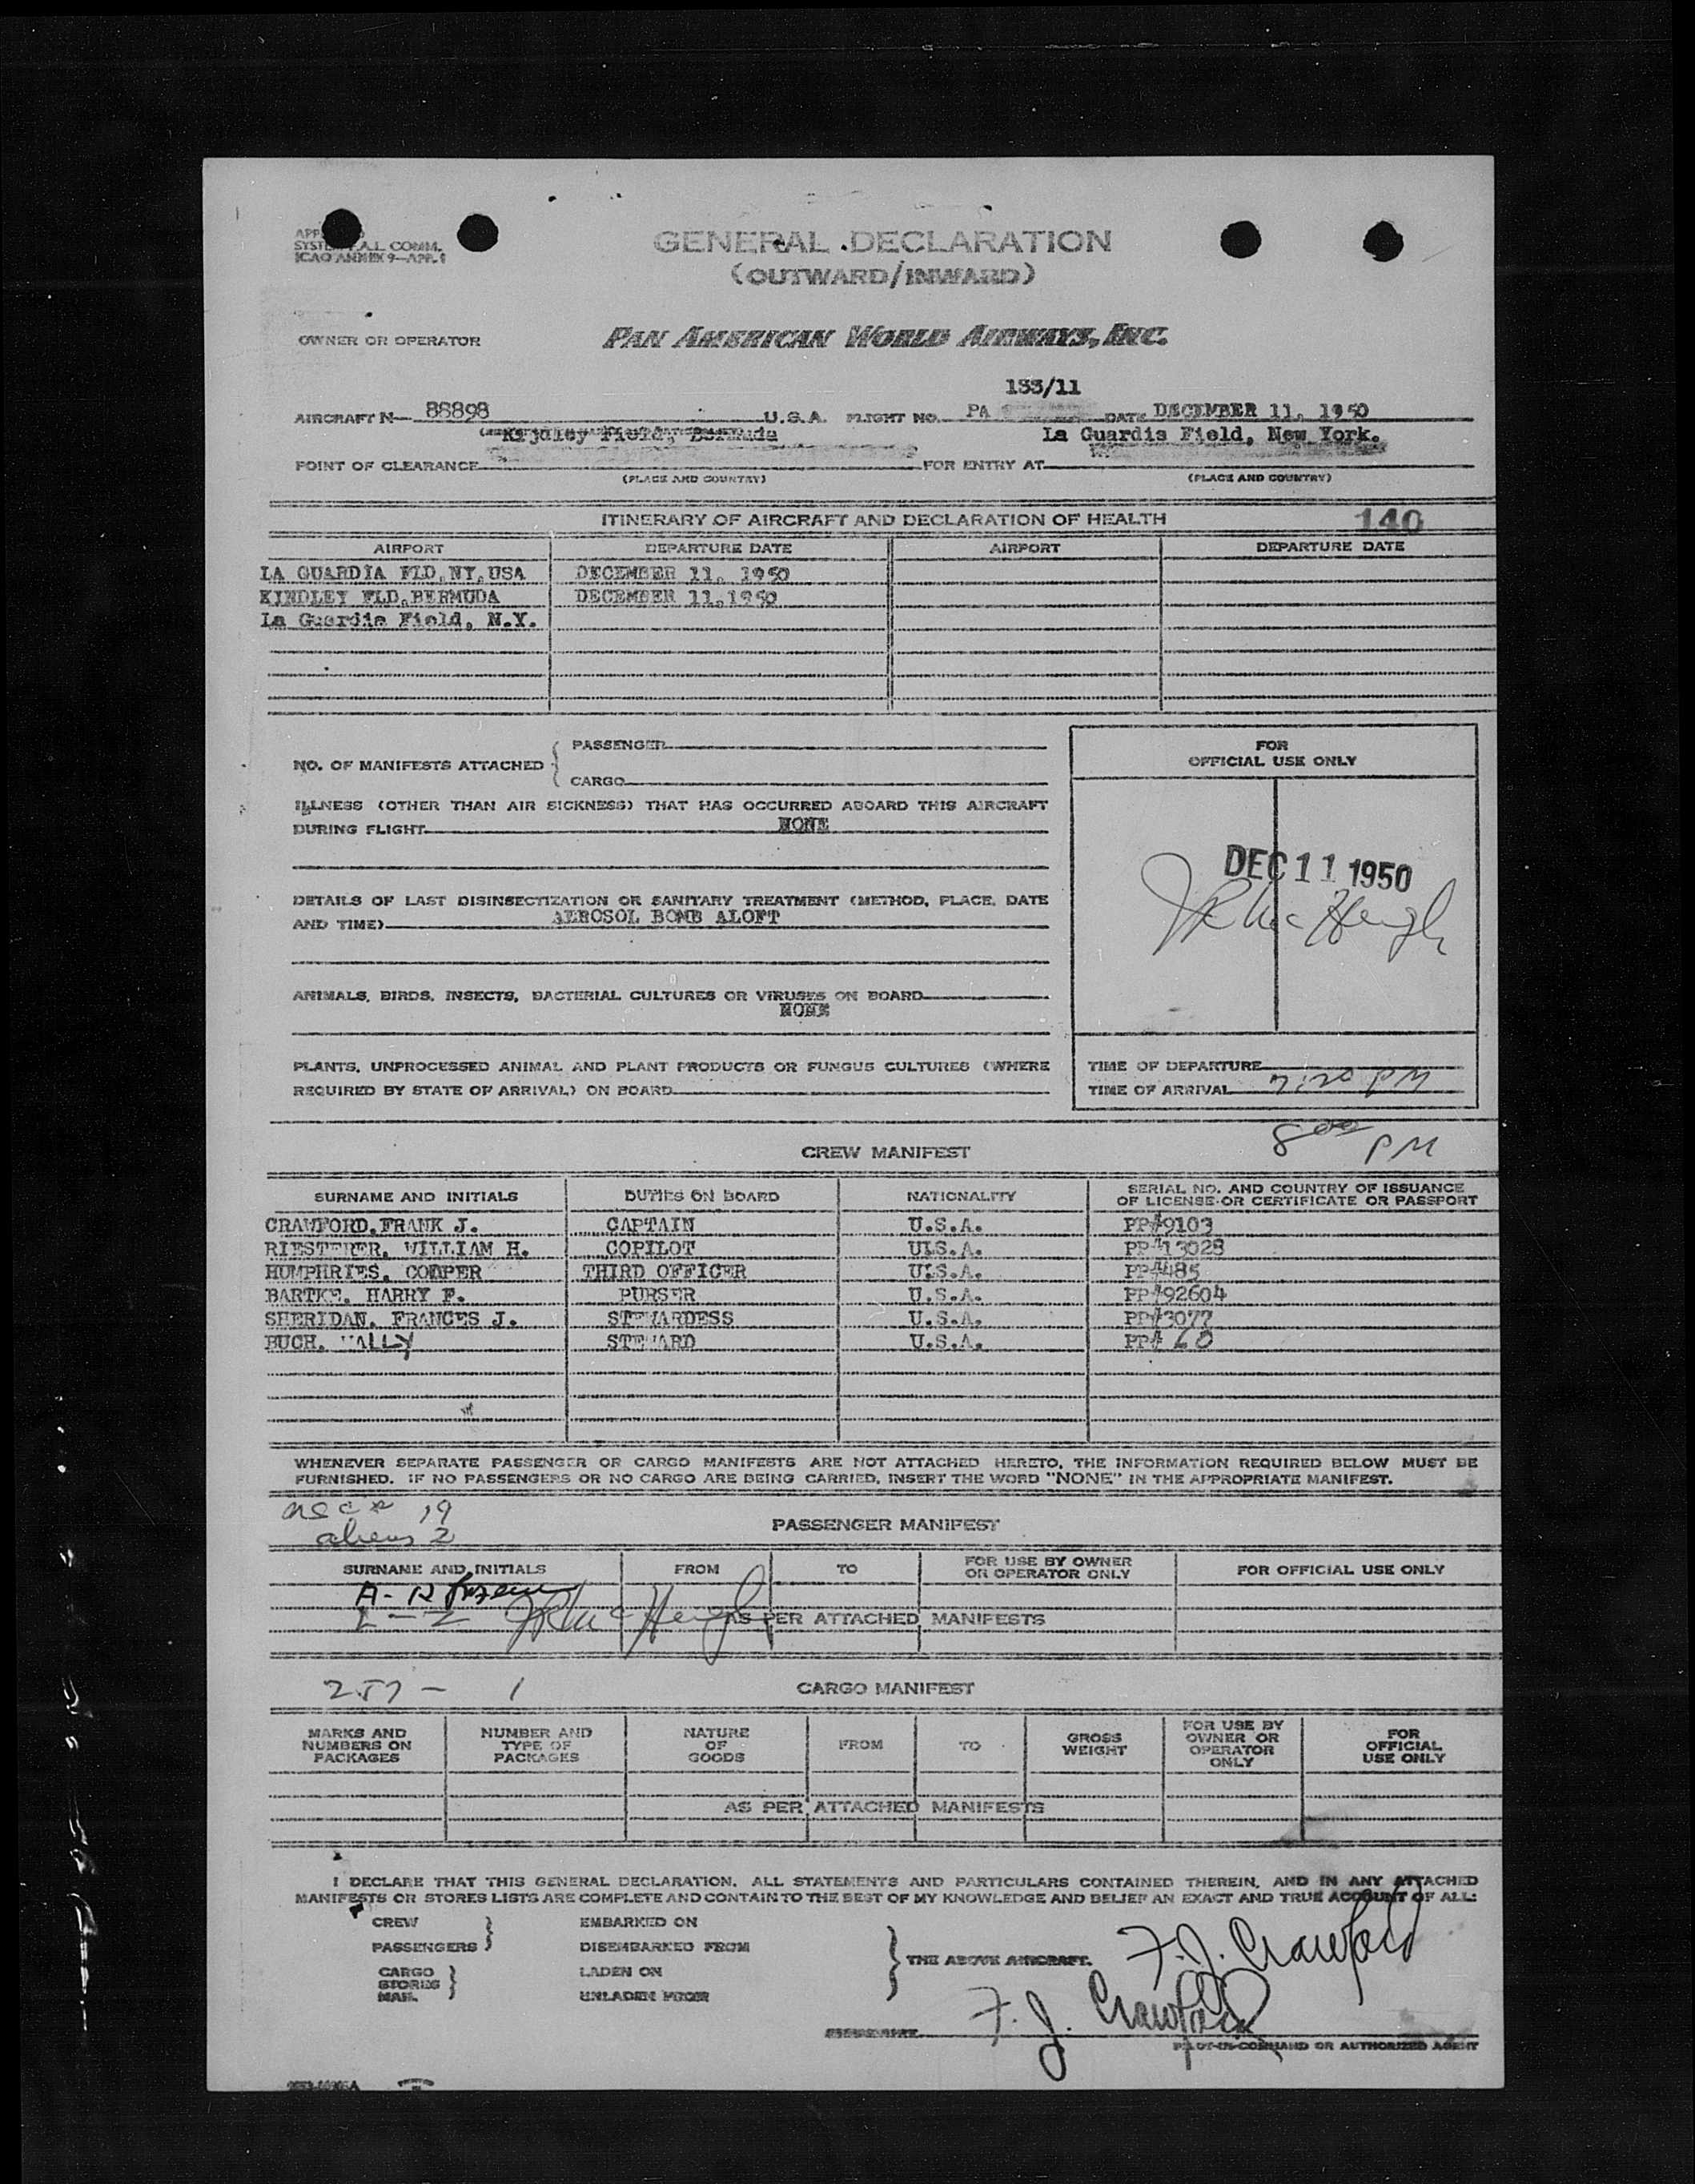 SYST F.A.L. COMM.
ICAO ANNEX 9—APP. 1
GENERAL DECLARATION
(OUTWARD/INWARD)
OWNER OR OPERATOR
PAN AMERICAN WORLD AIRWAYS, INC.
133/11
AIRCRAFT N— 88898 U.S.A. FLIGHT NO. PA DATE DECEMBER 11, 1950
Kindley Field, Bermuda La Guardia Field, New York.
POINT OF CLEARANCE FOR ENTRY AT
(PLACE AND COUNTRY) (PLACE AND COUNTRY)
ITINERARY OF AIRCRAFT AND DECLARATION OF HEALTH 140
AIRPORT DEPARTURE DATE AIRPORT DEPARTURE DATE
LA GUARDIA FLD,NY,USA DECEMBER 11, 1950
KINDLEY FLD,BERMUDA DECEMBER 11,1950
La Guardia Field, N.Y.
NO. OF MANIFESTS ATTACHED { PASSENGER
CARGO
FOR
OFFICIAL USE ONLY
ILLNESS (OTHER THAN AIR SICKNESS) THAT HAS OCCURRED ABOARD THIS AIRCRAFT
DURING FLIGHT NONE
DEC 11 1950
DETAILS OF LAST DISINSECTIZATION OR SANITARY TREATMENT (METHOD, PLACE, DATE
AND TIME) AEROSOL BOMB ALOFT
ANIMALS, BIRDS, INSECTS, BACTERIAL CULTURES OR VIRUSES ON BOARD
NONE
PLANTS, UNPROCESSED ANIMAL AND PLANT PRODUCTS OR FUNGUS CULTURES (WHERE
REQUIRED BY STATE OF ARRIVAL) ON BOARD
TIME OF DEPARTURE
TIME OF ARRIVAL 7:20 PM
8 00 PM
CREW MANIFEST
SURNAME AND INITIALS DUTIES ON BOARD NATIONALITY SERIAL NO. AND COUNTRY OF ISSUANCE
OF LICENSE OR CERTIFICATE OR PASSPORT
CRAWFORD, FRANK J. CAPTAIN U.S.A. PP#9103
RIESTERER, WILLIAM H. COPILOT UIS.A. PP#13028
HUMPHRIES, COOPER THIRD OFFICER U.S.A. PP#485
BARTKE, HARRY F. PURSER U.S.A. PP#92604
SHERIDAN, FRANCES J. STEWARDESS U.S.A. PP#3077
BUCH, WALLY STEWARD U.S.A. PP# 60
WHENEVER SEPARATE PASSENGER OR CARGO MANIFESTS ARE NOT ATTACHED HERETO, THE INFORMATION REQUIRED BELOW MUST BE
FURNISHED. IF NO PASSENGERS OR NO CARGO ARE BEING CARRIED, INSERT THE WORD "NONE" IN THE APPROPRIATE MANIFEST.
19
aliens 2
PASSENGER MANIFEST
SURNAME AND INITIALS FROM TO FOR USE BY OWNER
OR OPERATOR ONLY FOR OFFICIAL USE ONLY
AS PER ATTACHED MANIFESTS
257 — 1
CARGO MANIFEST
MARKS AND
NUMBERS ON
PACKAGES
NUMBER AND
TYPE OF
PACKAGES
NATURE
OF
GOODS
FROM
TO
GROSS
WEIGHT
FOR USE BY
OWNER OR
OPERATOR
ONLY
FOR
OFFICIAL
USE ONLY
AS PER ATTACHED MANIFESTS
I DECLARE THAT THIS GENERAL DECLARATION, ALL STATEMENTS AND PARTICULARS CONTAINED THEREIN, AND IN ANY ATTACHED
MANIFESTS OR STORES LISTS ARE COMPLETE AND CONTAIN TO THE BEST OF MY KNOWLEDGE AND BELIEF AN EXACT AND TRUE ACCOUNT OF ALL:
CREW EMBARKED ON
PASSENGERS } DISEMBARKED FROM
CARGO LADEN ON
STORES }
MAIL UNLADEN FROM
} THE ABOVE AIRCRAFT.
F. J. Crawford
F. J. Crawford
SIGNATURE
PILOT-IN-COMMAND OR AUTHORIZED AGENT